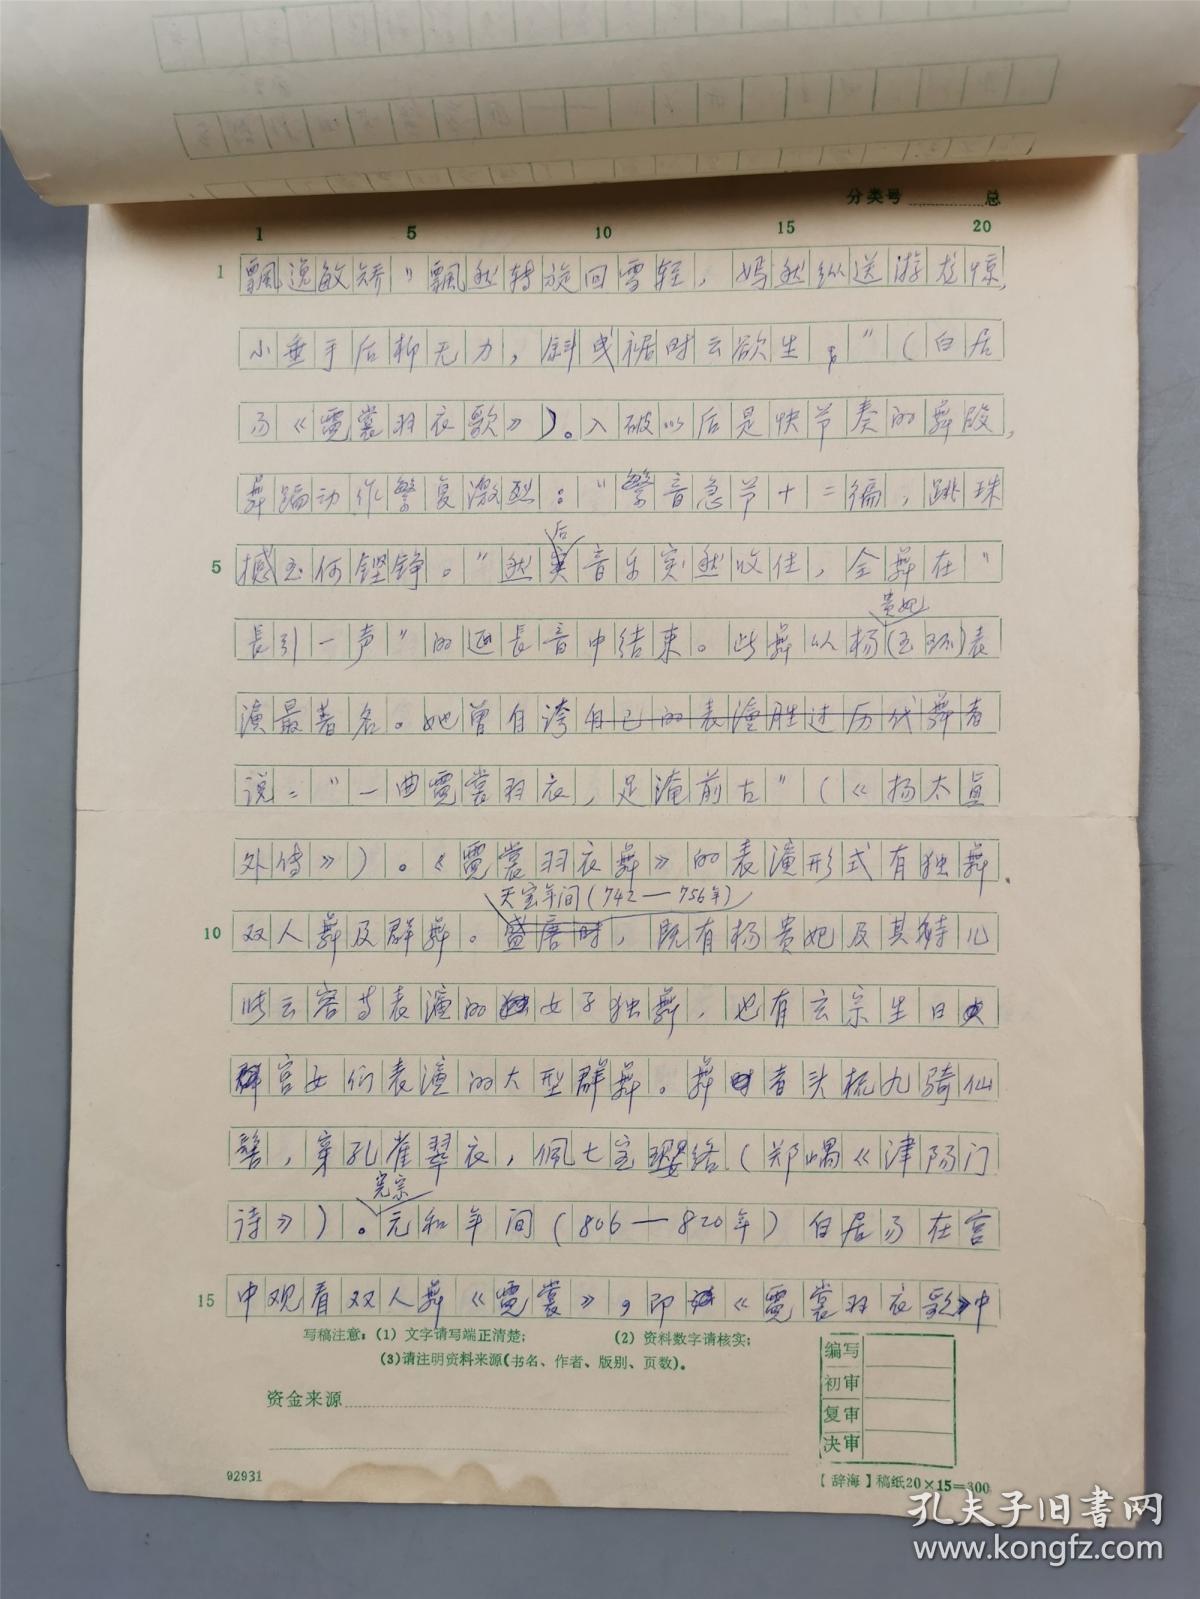 分类号 总
1 5 10 15 20
1 飘逸敏矫"飘然转旋回雪轻，嫣然纵送游龙惊，
小垂手后柳无力，斜曳裾时云欲生，"（白居
易《霓裳羽衣歌》）。入破以后是快节奏的舞段，
舞蹈动作繁复激烈："繁音急节十二徧，跳珠
后
5 撼玉何铿铮。"然 音乐突然收住，全舞在"
贵妃
長引一声"的延長音中结束。此舞以杨(玉环)表
演最著名。她曾自誇自己的表演胜过历代舞者
说："一曲霓裳羽衣，足淹前古"（《杨太真
外传》）。《霓裳羽衣舞》的表演形式有独舞、
天宝年间(742—756年)
10 双人舞及群舞。盛唐时，既有杨贵妃及其侍儿
张云容等表演的女子独舞，也有玄宗生日
宫女们表演的大型群舞。舞者头梳九骑仙
髻，穿孔雀翠衣，佩七宝璎络（郑嵎《津阳门
宪宗
诗》）。元和年间（806—820年）白居易在宫
15 中观看双人舞《霓裳》，即《霓裳羽衣歌》中
写稿注意：(1) 文字请写端正清楚； (2) 资料数字请核实；
(3)请注明资料来源(书名、作者、版别、页数)。
资金来源
编写
初审
复审
决审
92931
【辞海】稿纸20×15=300
孔夫子旧书网
www.kongfz.com